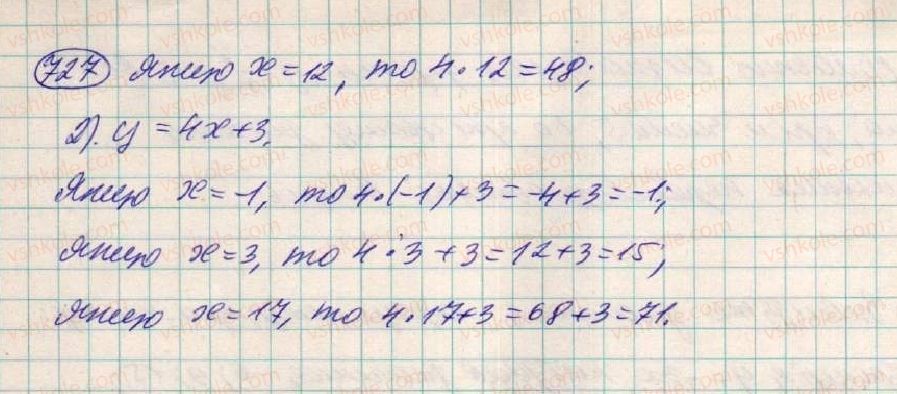 727 Якщо x = 12, то 4 · 12 = 48;
2). y = 4x + 3.
Якщо x = -1, то 4 · (-1) + 3 = -4 + 3 = -1;
Якщо x = 3, то 4 · 3 + 3 = 12 + 3 = 15;
Якщо x = 17, то 4 · 17 + 3 = 68 + 3 = 71.